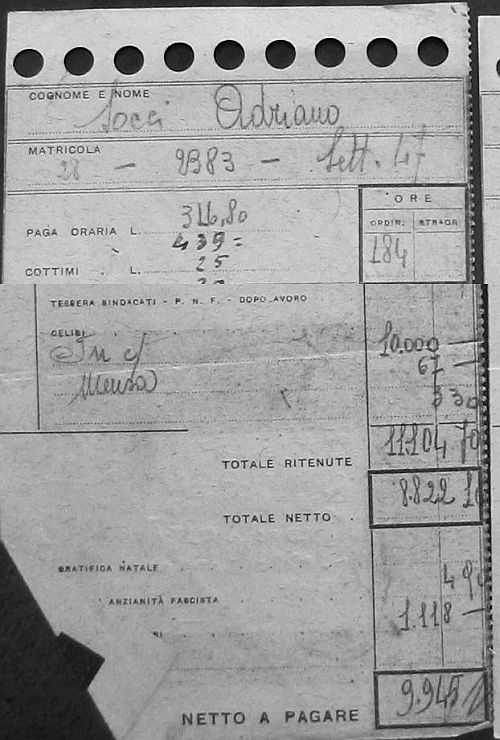 COGNOME E NOME
Socci Adriano
MATRICOLA
28 - 2383 - Sett. 47
ORE
ORDIN. STRAOR
184
PAGA ORARIA L. 316,80
439=
COTTIMI L. 25
TESSERA SINDACATI - P. N. F. - DOPOLAVORO
CELIBI
In c/ 10.000
Mensa 67
330
TOTALE RITENUTE 11.104 70
TOTALE NETTO 8.822 10
GRATIFICA NATALE
ANZIANITÀ FASCISTA 1.118
NETTO A PAGARE 9.945